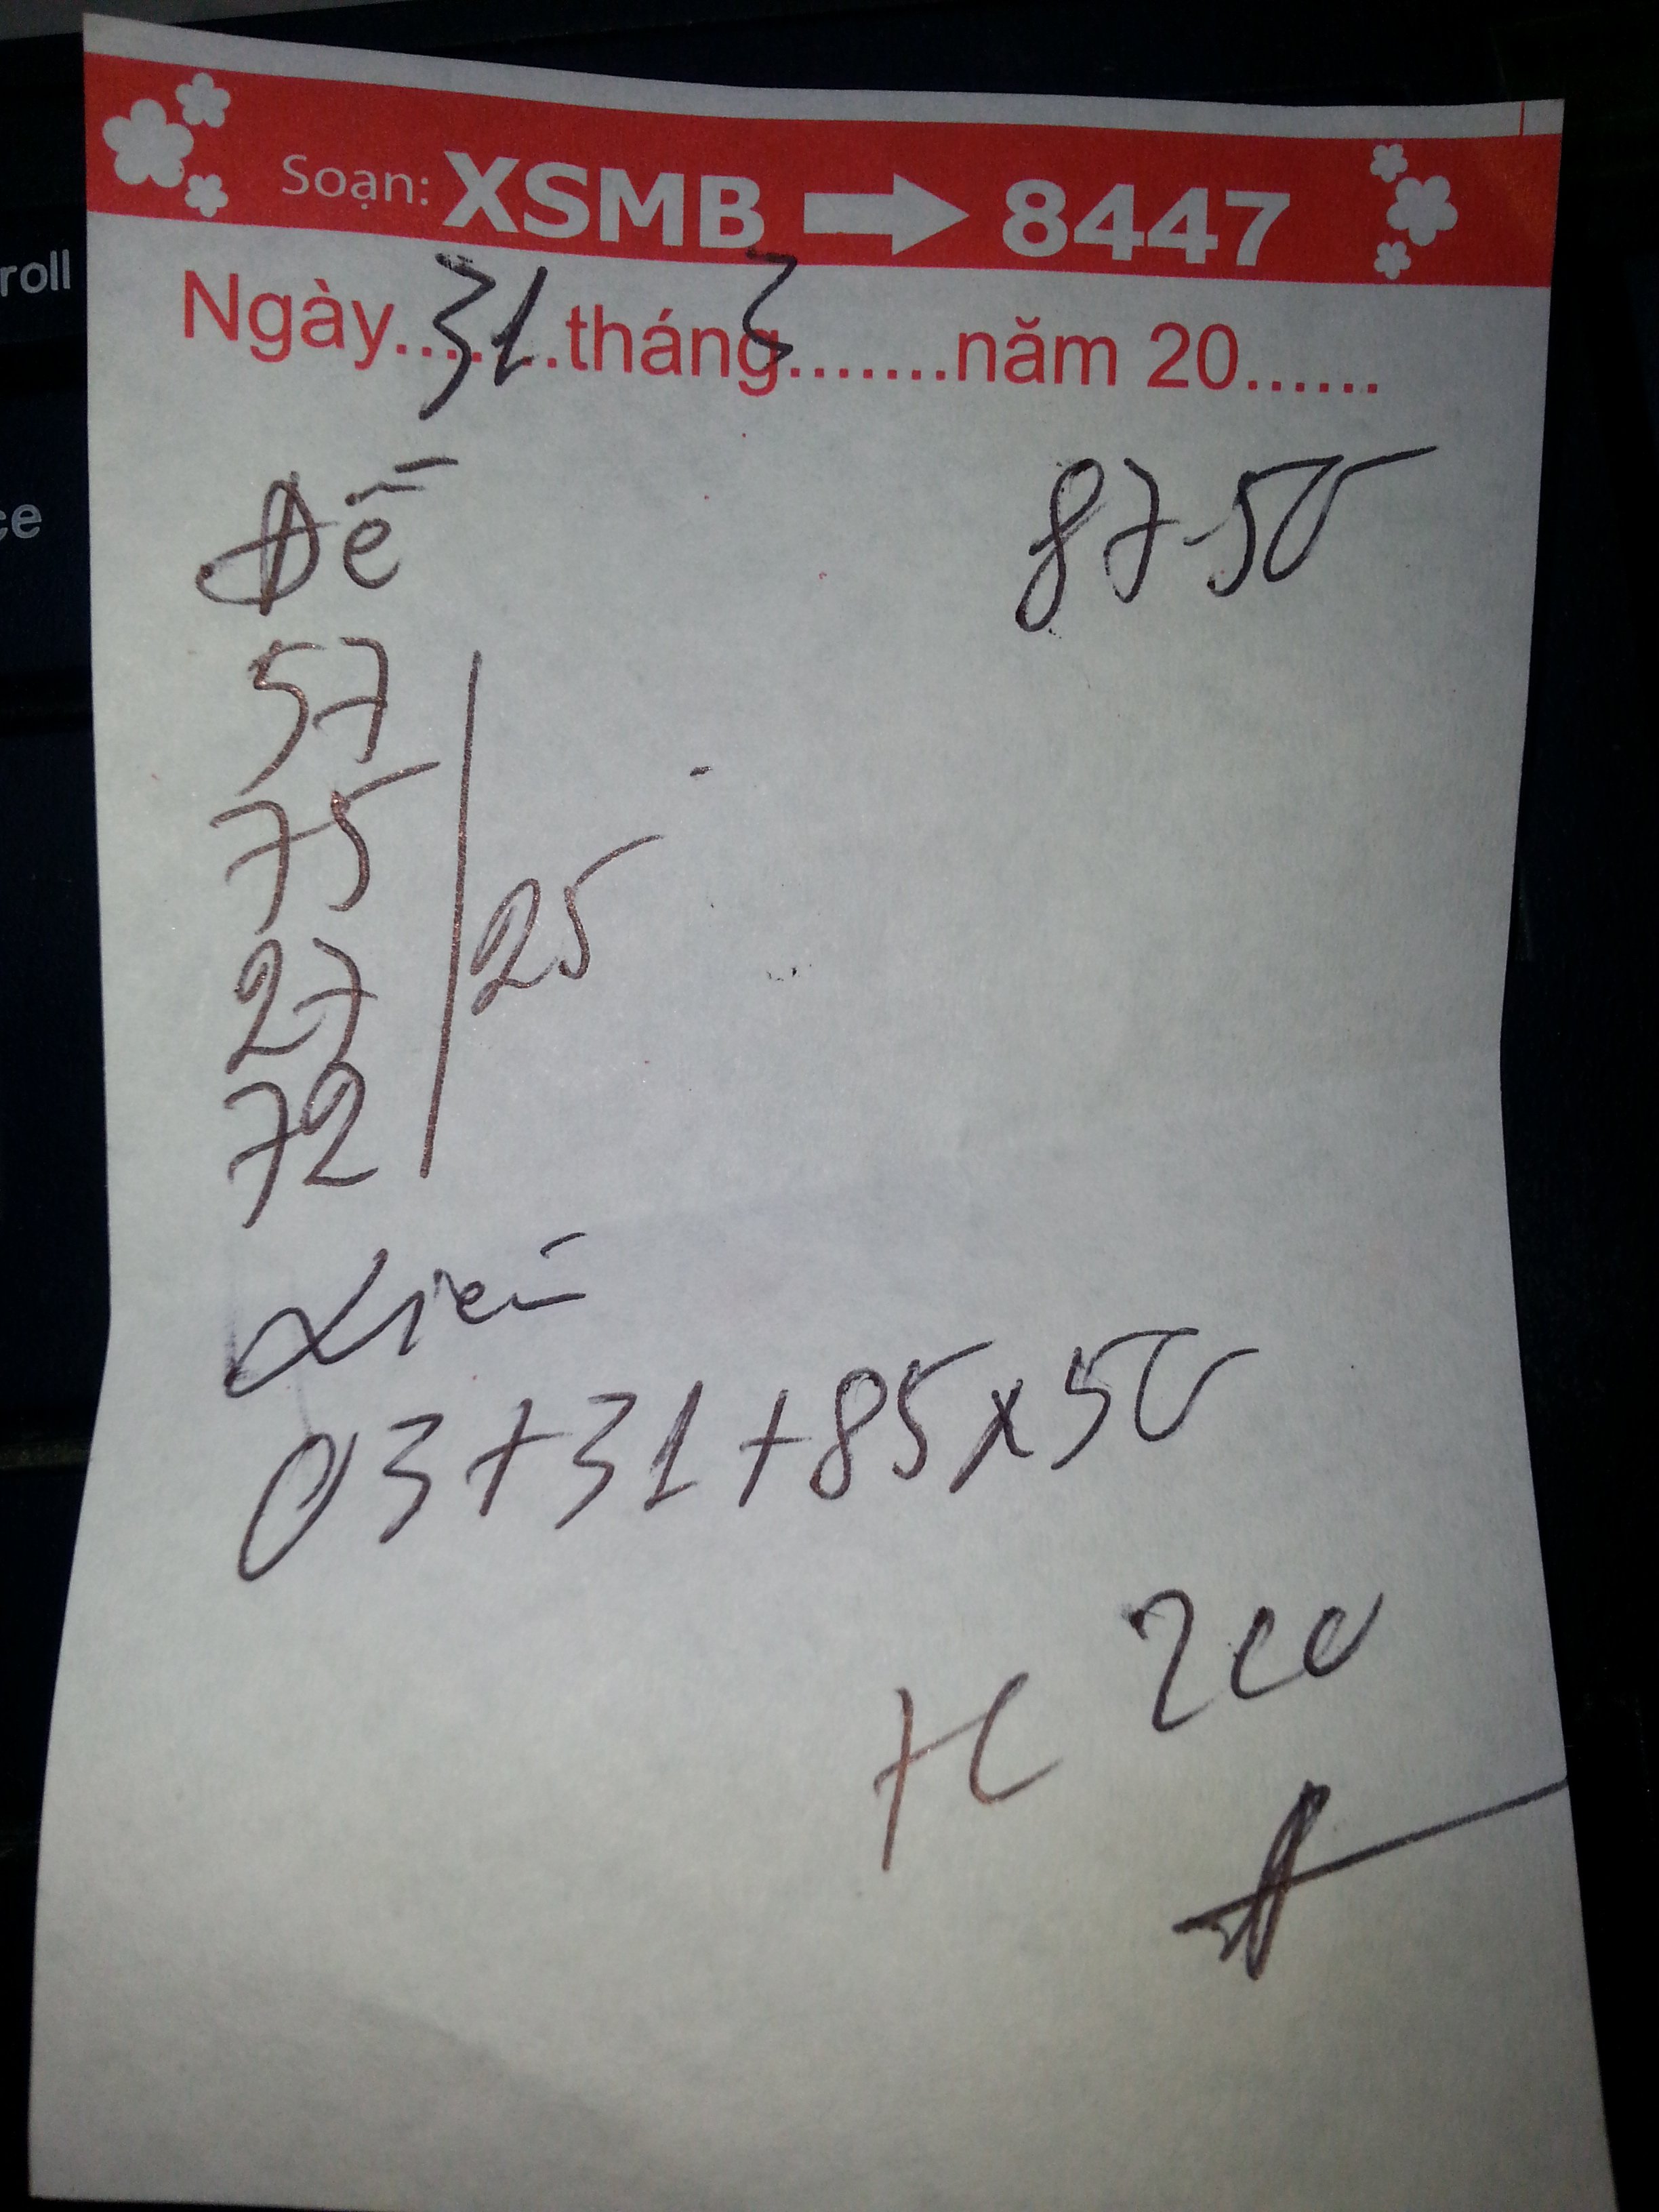 roll
ce
Soạn: XSMB 8447
Ngày...31....tháng 3.......năm 20......
Đề 87-50
57
75
25
27
72
Xiên
03+31+85x50
200
TC